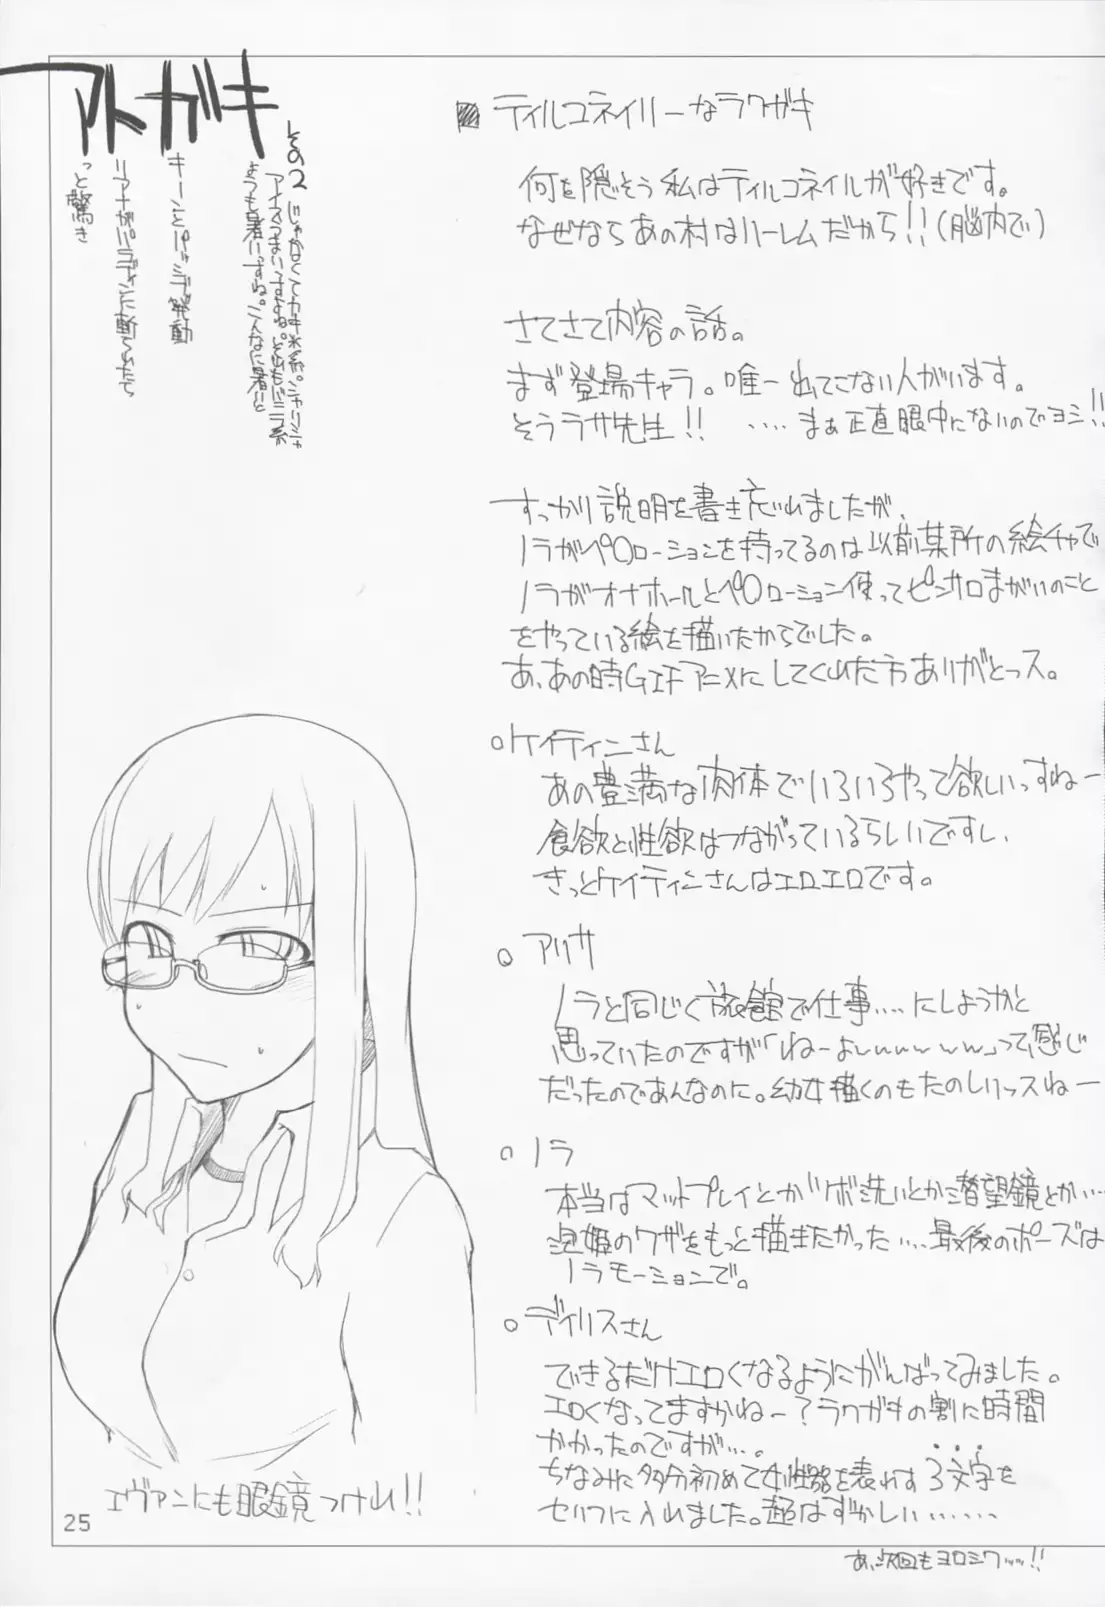 アトガキ
その2 じゃなくてカキ氷系。シャリシャ
アイスうまいっすよね。それもバニラ系
とっても暑いっすね。こんなに暑いと
キーンとパッシブ発動
リアナがパラディンに斬られたら
っと驚き
ティルコネイルーなラクガキ
何を隠そう私はティルコネイルが好きです。
なぜならあの村はハーレムだから!!(脳内で)
さてさて内容の話。
まず登場キャラ。唯一出てこない人がいます。
そうラサ先生!! ‥‥まぁ正直眼中にないのでヨシ!!
すっかり説明を書き忘れましたが、
ノラがペ○ローションを持ってるのは以前某所の絵チャで
ノラがオナホールとペ○ローション使ってピンサロまがいのこと
をやっている絵を描いたからでした。
あ、あの時GIFアニメにしてくれた方ありがとっス。
○ケイティンさん
あの豊満な肉体でいろいろやって欲しいっすねー
食欲と性欲はつながっているらしいですし、
きっとケイティンさんはエロエロです。
○アリサ
ノラと同じく旅館で仕事‥‥にしようかと
思っていたのですが「ねーよwwwwww」って感じ
だったのであんなのに。幼女描くのもたのしいっスねー
○ノラ
本当はマットプレイとかツボ洗いとか潜望鏡とか‥‥
泡姫のワザをもっと描きたかった‥‥最後のポーズは
ノラモーションで。
○デイリスさん
できるだけエロくなるようにがんばってみました。
エロくなってますかねー?ラクガキの割に時間
かかったのですが‥‥。
ちなみに多分初めて女性器を表わす3文字を
セリフに入れました。超はずかしい‥‥‥‥
エヴァンにも眼鏡つけれ!!
25
あ、次回もヨロシクッッ!!